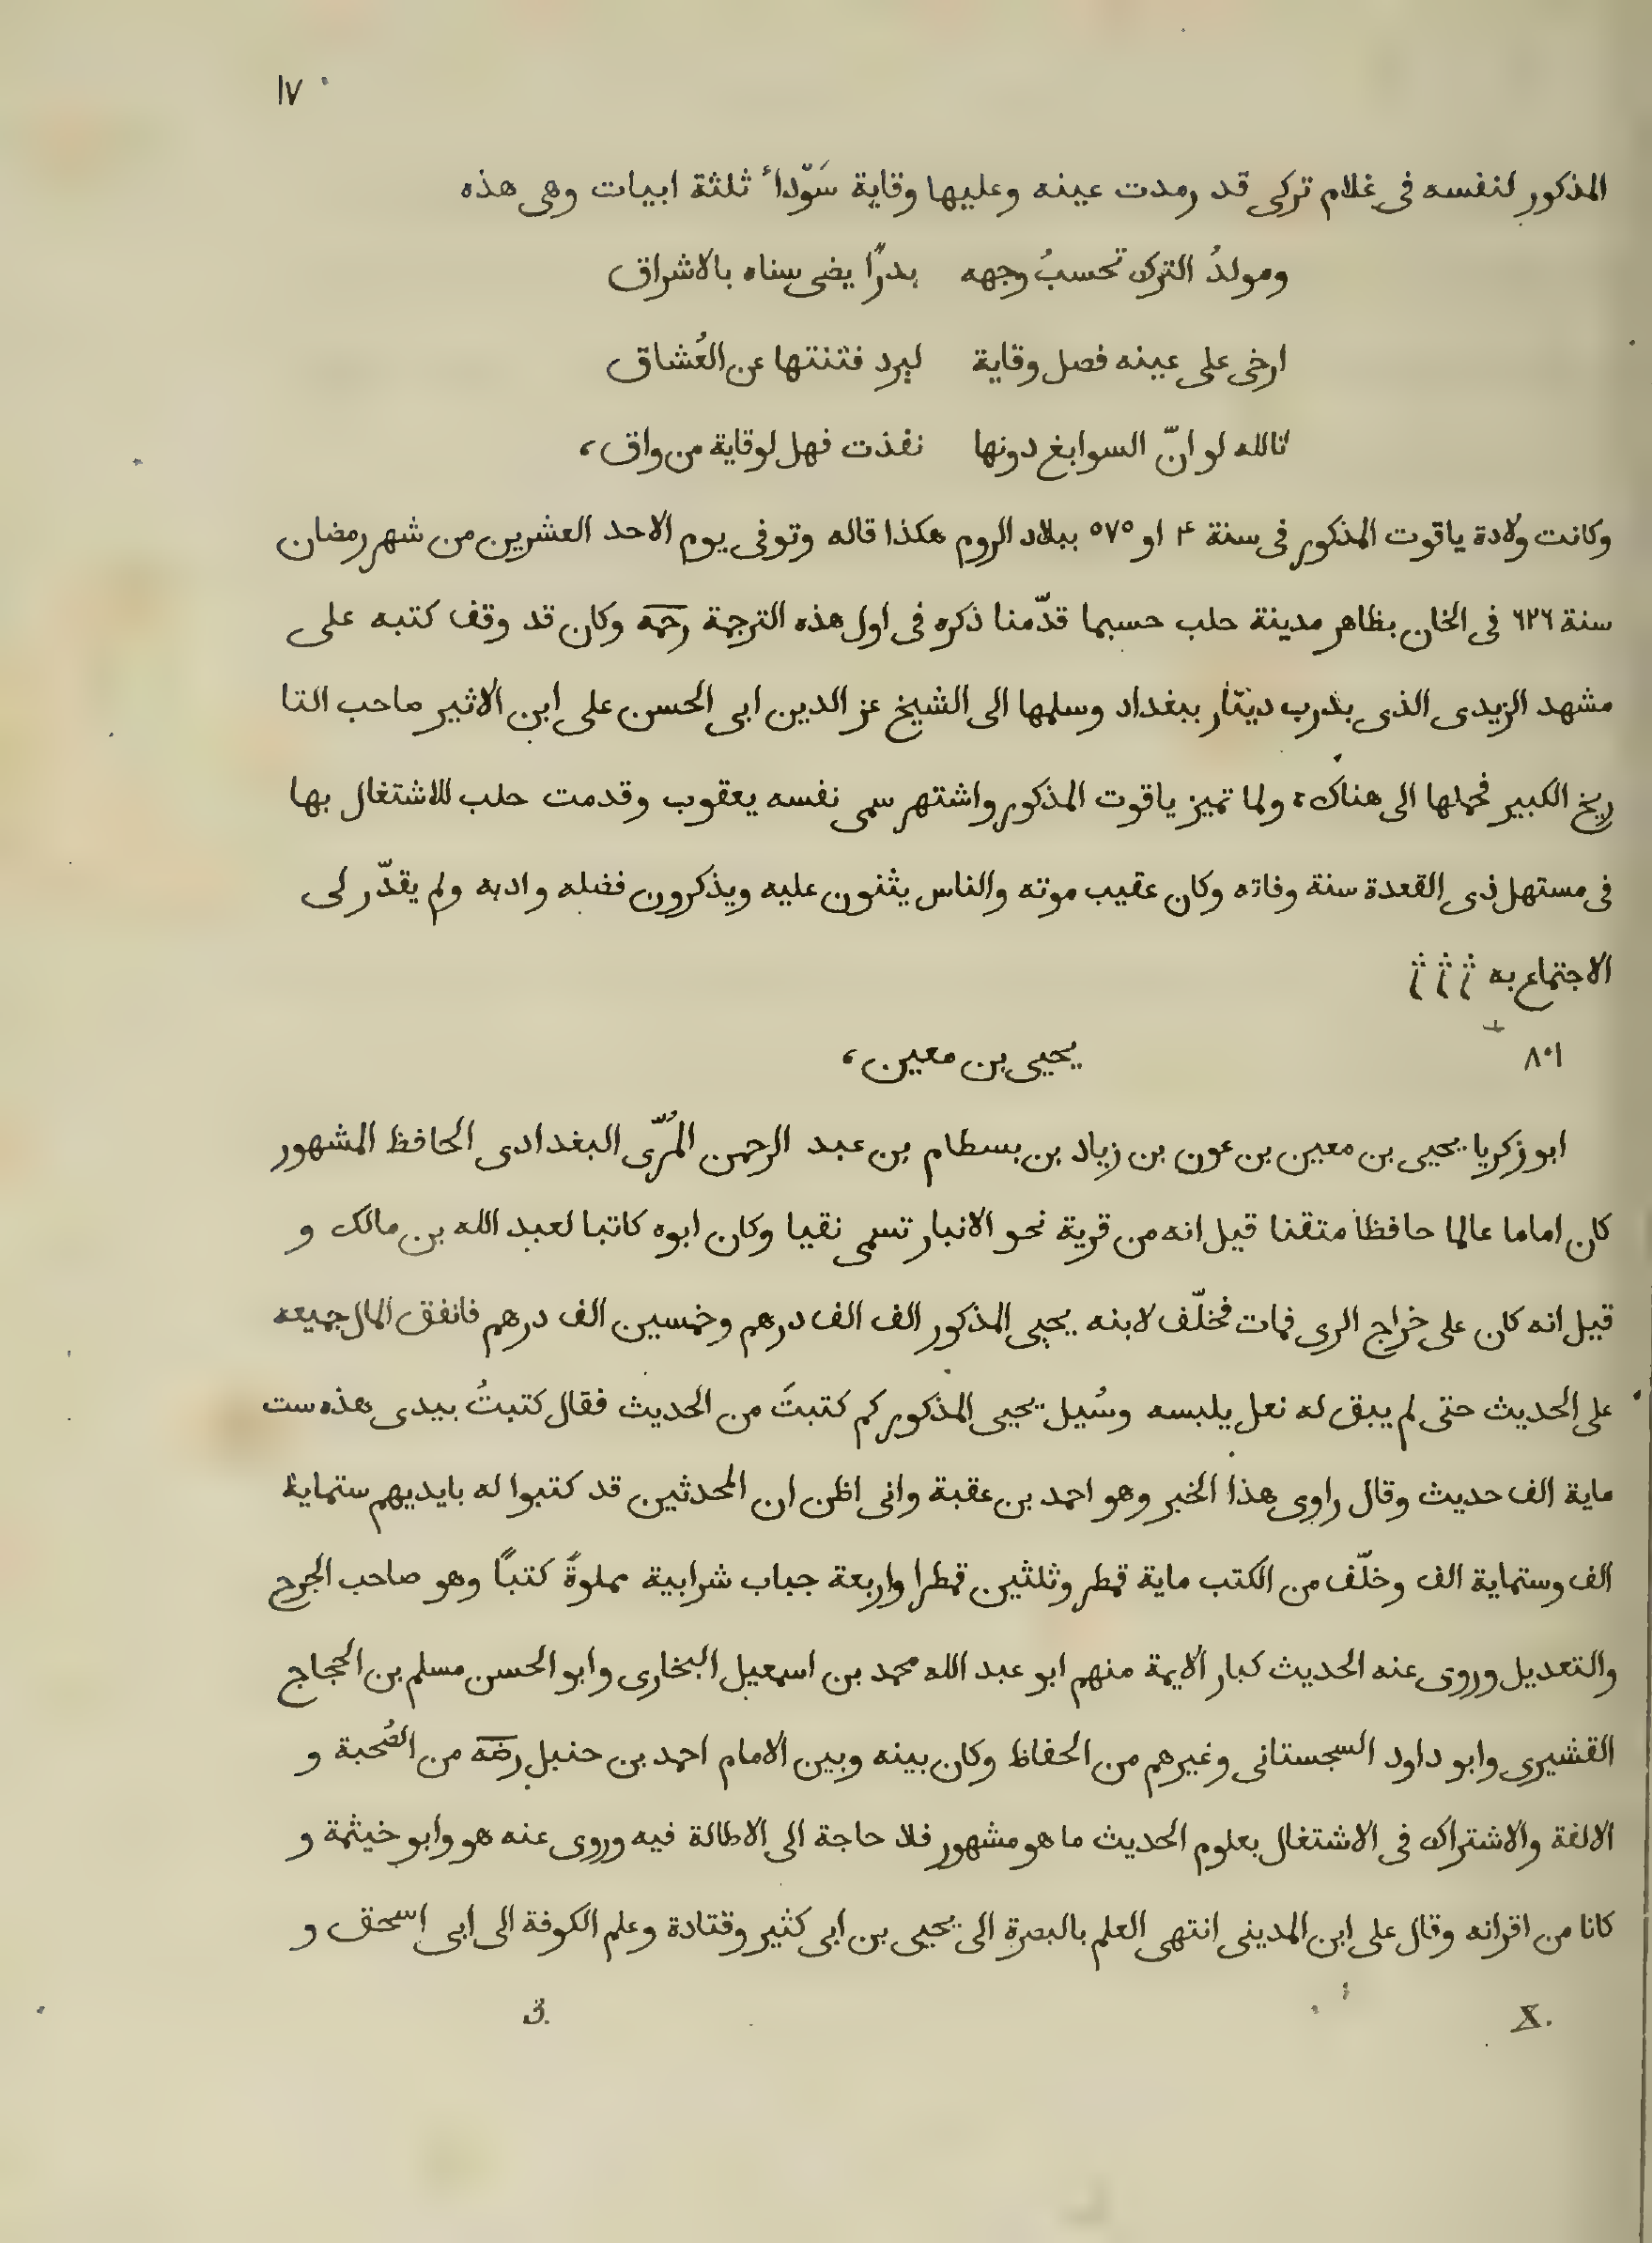 ١٧
المذكور لنفسه فى غلام تركى قد رمدت عينه وعليها وقاية سَوّداﺀ ثلثة ابيات وهى هذه
ومولدُ الترك تحسبُ وجهه بدرًا يضى سناه بالاشراق
ارخى على عينه فصل وقاية ليرد فتنتها عن العُشاق
تالله لو انّ السوابغ دونها نفذت فهل لوقاية من واق،
وكانت ولادة ياقوت المذكور فى سنة ۴ او ٥٧٥ ببلاد الروم هكذا قاله وتوفى يوم الاحد العشرين من شهر رمضان
سنة ٦٢٦ فى الخان بظاهر مدينة حلب حسبما قدّمنا ذكره فى اول هذه الترجمة رحمه وكان قد وقف كتبه على
مشهد الزيدى الذى بدرب دينّار ببغداد وسلمها الى الشيخ عز الدين ابى الحسن على ابن الاثير صاحب التا
ريخ الكبير فحملها الى هناك، ولما تميز ياقوت المذكور واشتهر سمى نفسه يعقوب وقدمت حلب للاشتغال بها
فى مستهل ذى القعدة سنة وفاته وكان عقيب موته والناس يثنون عليه ويذكرون فضله وادبه ولم يقدّر لى
الاجتماع به
٨٠١
يحيى بن معين،
ابو زكريا يحيى بن معين بن عون بن زياد بن بسطام بن عبد الرحمن المُرّى البغدادى الحافظ المشهور
كان اماما عالما حافظا متقنا قيل انه من قرية نحو الانبار تسمى نقيا وكان ابوه كاتبا لعبد الله بن مالك و
قيل انه كان على خراج الرى فمات فخلّف لابنه يحيى المذكور الف الف درهم وخمسين الف درهم فانفق المال جميعه
على الحديث حتى لم يبق له نعل يلبسه وسُيل يحيى المذكور كم كتبتَ من الحديث فقال كتبتُ بيدى هذه ست
ماية الف حديث وقال راوى هذا الخبر وهو احمد بن عقبة وانى اظن ان المحدثين قد كتبوا له بايديهم ستماية
الف وستماية الف وخلّف من الكتب ماية قمطر وثلثين قمطرا واربعة جباب شرابية مملوةً كتبًا وهو صاحب الجرح
والتعديل وروى عنه الحديث كبار الايمة منهم ابو عبد الله محمد بن اسمعيل البخارى وابو الحسن مسلم بن الحجاج
القشيرى وابو داود السجستانى وغيرهم من الحفاظ وكان بينه وبين الامام احمد بن حنبل رضه من الصُحبة و
الالفة والاشتراك فى الاشتغال بعلوم الحديث ما هو مشهور فلا حاجة الى الاطالة فيه وروى عنه هو وابو خيثمة و
كانا من اقرانه وقال على ابن المدينى انتهى العلم بالبصرة الى يحيى بن ابى كثير وقتادة وعلم الكوفة الى ابى اسحق و
X. 3.